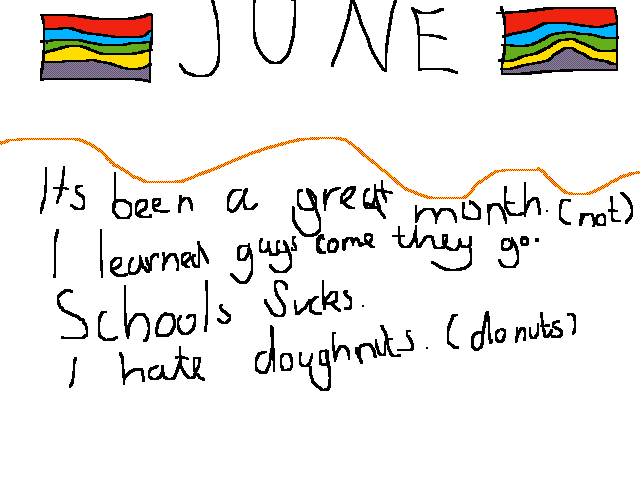 JUNE
Its been a great month. (not)
I learned guys come they go.
Schools Sucks.
I hate doughnuts. (donuts)